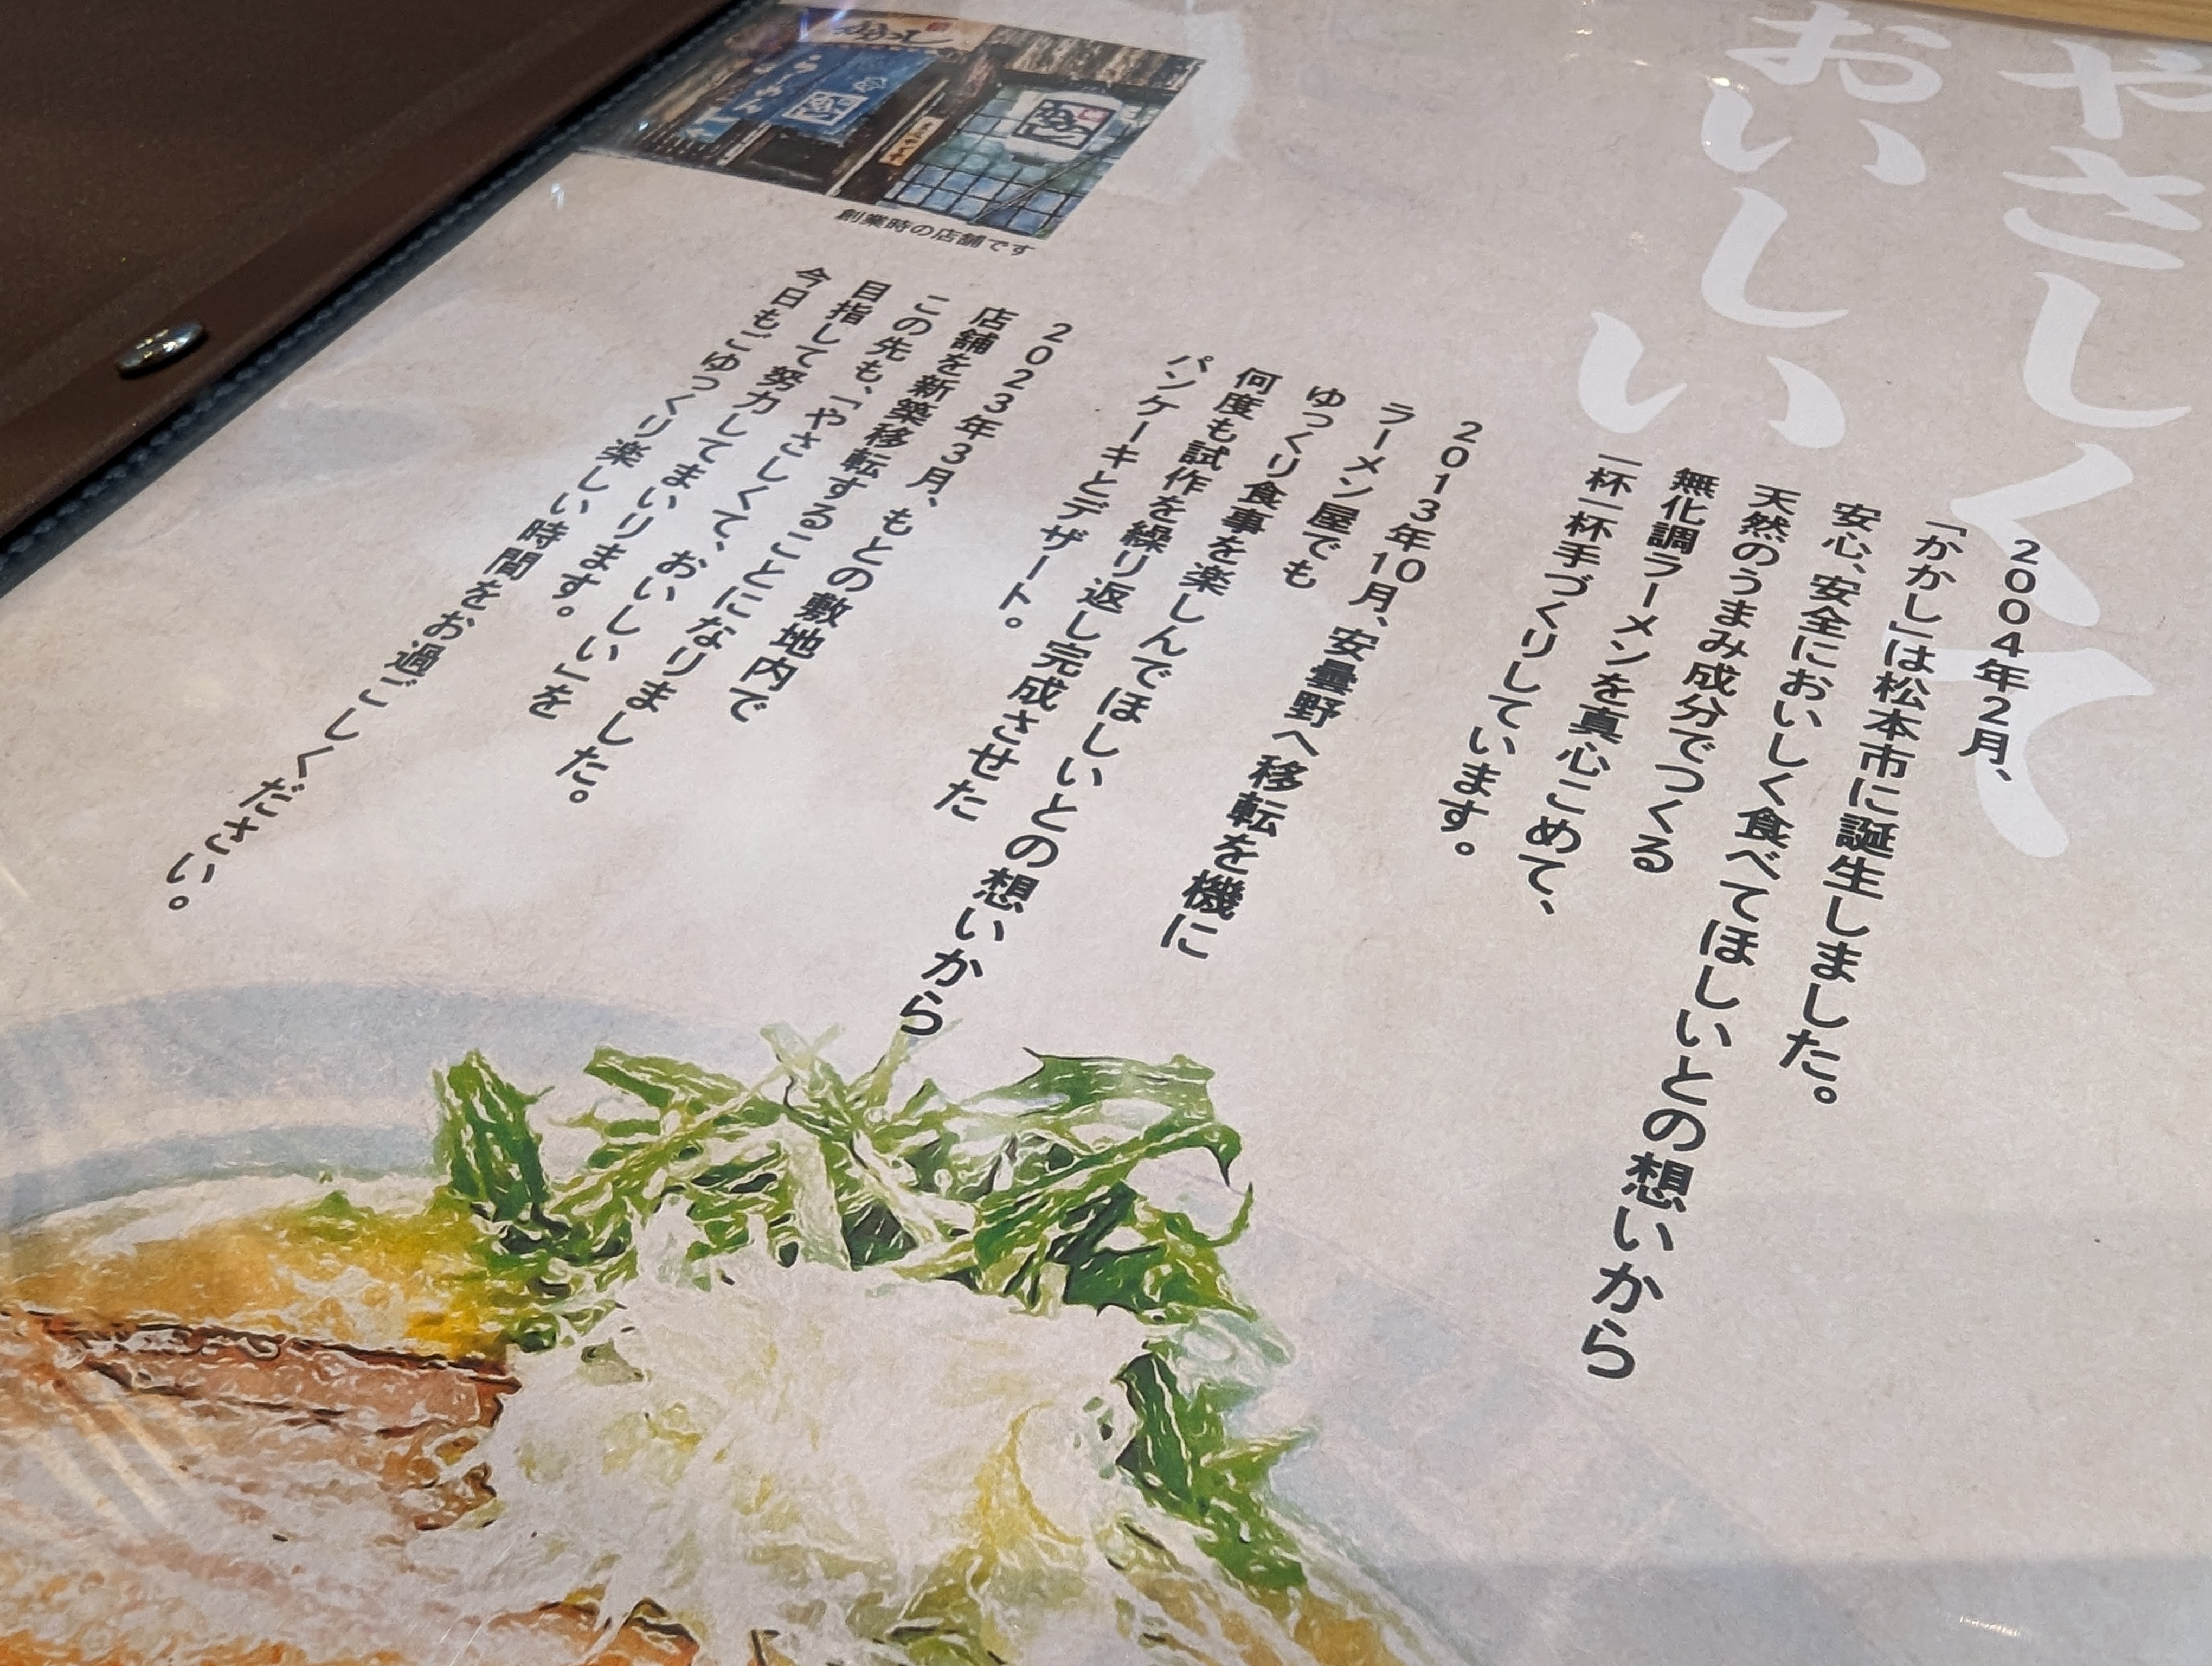 やさしくて
おいしい
2004年2月、
「かかし」は松本市に誕生しました。
安心、安全においしく食べてほしいとの想いから
天然のうまみ成分でつくる
無化調ラーメンを真心こめて、
一杯一杯手づくりしています。
2013年10月、安曇野へ移転を機に
ラーメン屋でも
ゆっくり食事を楽しんでほしいとの想いから
何度も試作を繰り返し完成させた
パンケーキとデザート。
2023年3月、もとの敷地内で
店舗を新築移転することになりました。
この先も、「やさしくて、おいしい」を
目指して努力してまいります。
今日もごゆっくり楽しい時間をお過ごしください。
創業時の店舗です
らーめん